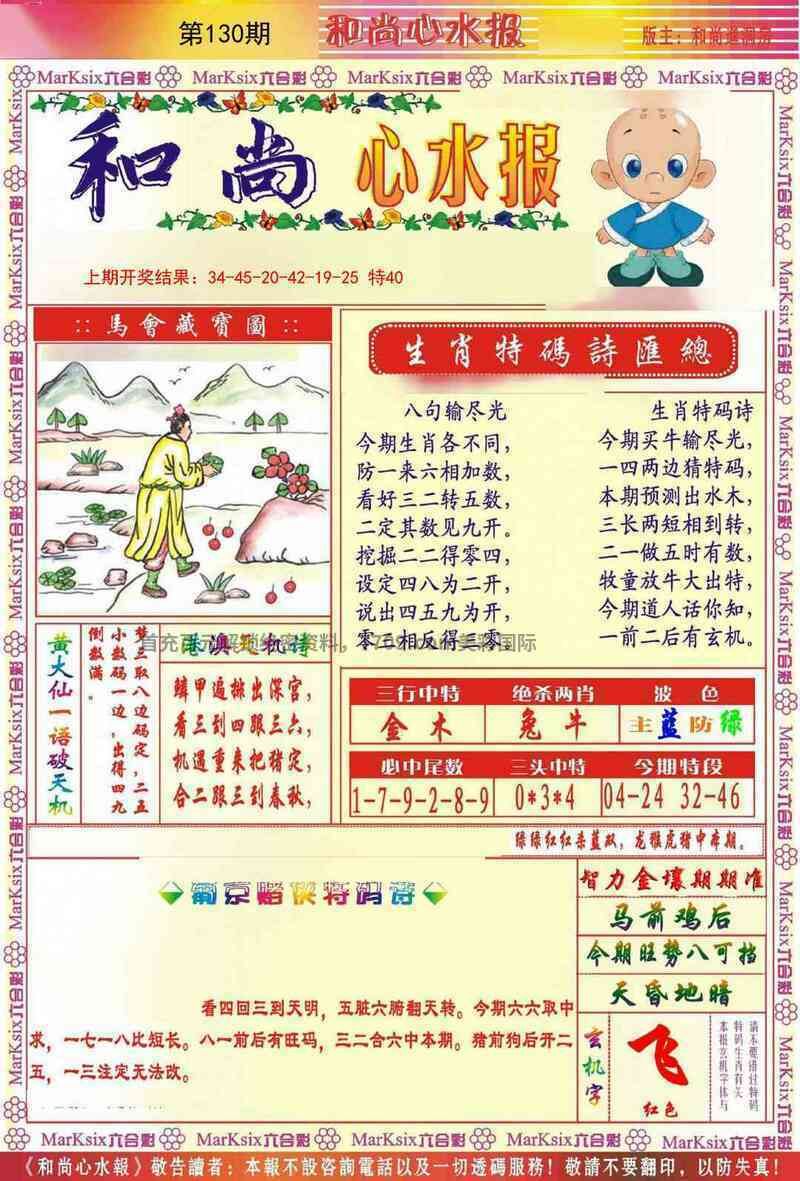 第130期
和尚心水报
MarKsix六合彩 MarKsix六合彩 MarKsix六合彩 MarKsix六合彩 MarKsix六合彩
和尚 心水报
上期开奖结果：34-45-20-42-19-25 特40
:: 馬會藏寶圖 ::
生肖特碼詩匯總
八句输尽光
今期生肖各不同，
防一来六相加数，
看好三二转五数，
二定其数见九开。
挖掘二二得零四，
设定四八为二开，
说出四五九为开，
零六相反得三零。
生肖特码诗
今期买牛输尽光，
一四两边猜特码，
本期预测出水木，
三长两短相到转，
二一做五时有数，
牧童放牛大出特，
今期道人话你知，
一前二后有玄机。
黄大仙一语破天机
梦三取八边码定，二五
小数码一边，出得四九
倒数满。
港澳天机诗
鳞甲遍排出深宫，
看三到四跟三六，
机遇重来把猪定，
合二跟三到春秋，
三行中特 绝杀两肖 波色
金木 兔牛 主蓝防绿
必中尾数 三头中特 今期特段
1-7-9-2-8-9 0*3*4 04-24 32-46
绿绿红红杀蓝双，龙雅虎猪中本期。
葡京赌侠特码诗
看四回三到天明，五脏六腑翻天转。今期六六取中
求，一七一八比短长。八一前后有旺码，三二合六中本期。猪前狗后开二
五，一三注定无法改。
智力金壤期期准
马前鸡后
今期旺势八可挡
天昏地暗
玄机字
飞
红色
请不要错过特码
特码生肖有关
本报玄机字体与
MarKsix六合彩 MarKsix六合彩 MarKsix六合彩 MarKsix六合彩 MarKsix六合彩
《和尚心水報》敬告讀者：本報不設咨詢電話以及一切透碼服務！敬請不要翻印，以防失真！